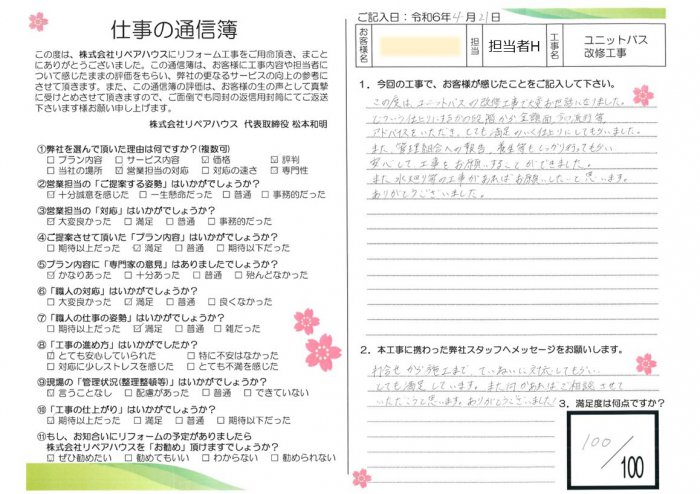 仕事の通信簿
この度は、株式会社リペアハウスにリフォーム工事をご用命頂き、まこと
にありがとうございました。この通信簿は、お客様に工事内容や担当者に
ついて感じたままの評価をもらい、弊社の更なるサービスの向上の参考に
させて頂きます。また、この通信簿の評価は、お客様の生の声として真摯
に受けとめさせて頂きますので、ご面倒でも同封の返信用封筒にてご返送
下さいます様お願い申し上げます。
株式会社リペアハウス 代表取締役 松本和明
①弊社を選んで頂いた理由は何ですか?(複数可)
□ プラン内容 □ サービス内容 ☑ 価格 ☑ 評判
□ 当社の場所 ☑ 営業担当の対応 □ 対応の速さ ☑ 専門性
②営業担当の「ご提案する姿勢」はいかがでしょうか?
☑ 十分誠意を感じた □ 一生懸命だった □ 普通 □ 事務的だった
③営業担当の「対応」はいかがでしょうか?
☑ 大変良かった □ 満足 □ 普通 □ 事務的だった
④ご提案させて頂いた「プラン内容」はいかがでしょうか?
□ 期待以上だった ☑ 満足 □ 普通 □ 期待以下だった
⑤プラン内容に「専門家の意見」はありましたでしょうか?
☑ かなりあった □ 十分あった □ 普通 □ 殆んどなかった
⑥「職人の対応」はいかがでしょうか?
□ 大変良かった ☑ 満足 □ 普通 □ 良くなかった
⑦「職人の仕事の姿勢」はいかがでしょうか?
□ 期待以上だった ☑ 満足 □ 普通 □ 雑だった
⑧「工事の進め方」はいかがでしたか?
☑ とても安心していられた □ 特に不安はなかった
□ 対応に少しストレスを感じた □ とても不満を感じた
⑨現場の「管理状況(整理整頓等)」はいかがでしょうか?
☑ 言うことなし □ 配慮があった □ 普通 □ できていない
⑩「工事の仕上がり」はいかがでしょうか?
□ 期待以上だった ☑ 満足 □ 普通 □ 期待以下だった
⑪もし、お知合いにリフォームの予定がありましたら
株式会社リペアハウスを「お勧め」頂けますでしょうか?
☑ ぜひ勧めたい □ 勧めてもいい □ わからない □ 勧められない
ご記入日:令和6年4月21日
お客様名 担当 担当者H 工事名 ユニットバス
改修工事
1. 今回の工事で、お客様が感じたことをご記入して下さい。
この度は、ユニットバスの改修工事で大変お世話になりました。
アドバイスをいただき、とても満足のいく仕上りにしてもらいました。
また、管理組合への報告、養生等もしっかり行ってもらい、
安心して工事をお願いすることができました。
また水廻り等の工事があればお願いしたいと思います。
ありがとうございました。
2. 本工事に携わった弊社スタッフへメッセージをお願いします。
打合せから施工まで、ていねいに対応してもらい、
とても満足しています。また何かあればご相談させて
いただこうと思います。ありがとうございました!
3. 満足度は何点ですか?
100/100